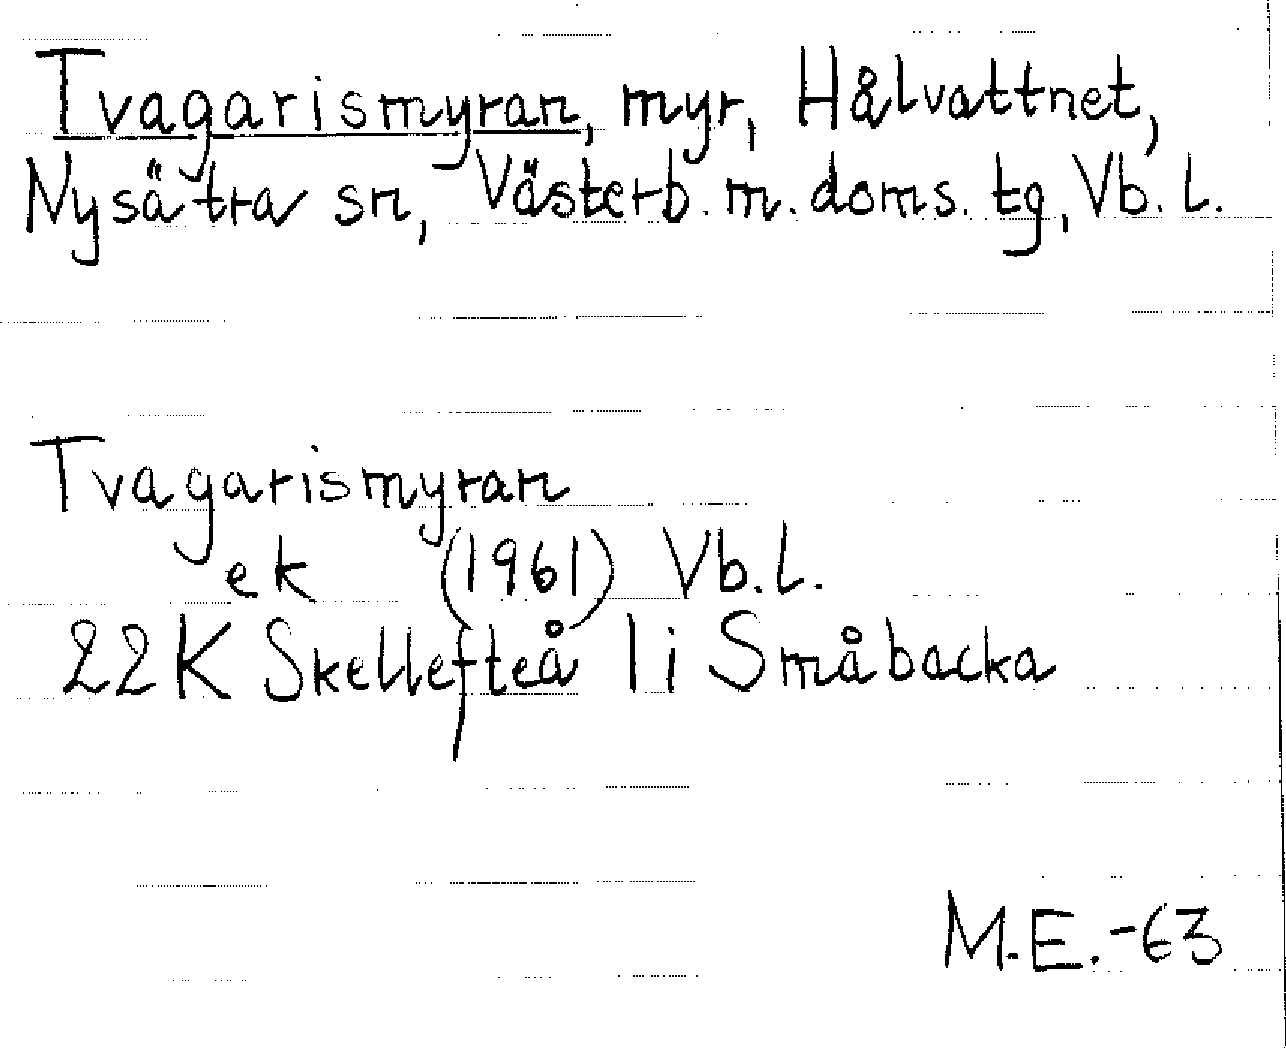 Tvagarismyran, myr, Hålvattnet,
Nysätra sn, Västerb. m. doms. tg, Vb. l.
Tvagarismyran
ek (1961) Vb. l.
22K Skellefteå 1 i Småbacka
M.E.-63